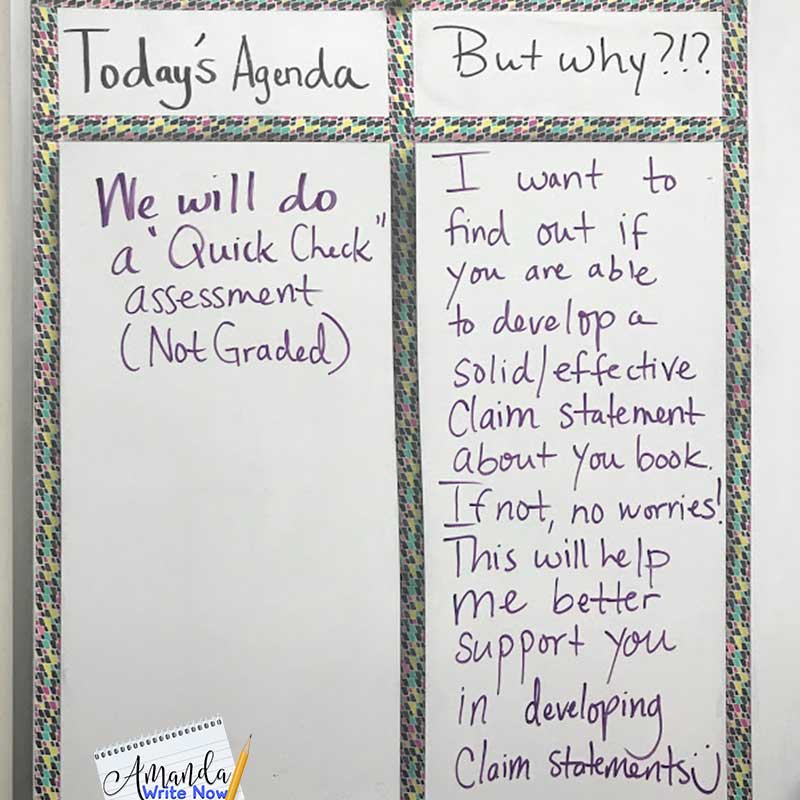 Today's Agenda
We will do
a "Quick Check"
assessment
(Not Graded)
But why?!?
I want to
find out if
you are able
to develop a
solid/effective
Claim statement
about you book.
If not, no worries!
This will help
me better
support you
in developing
Claim statements
Amanda
Write Now